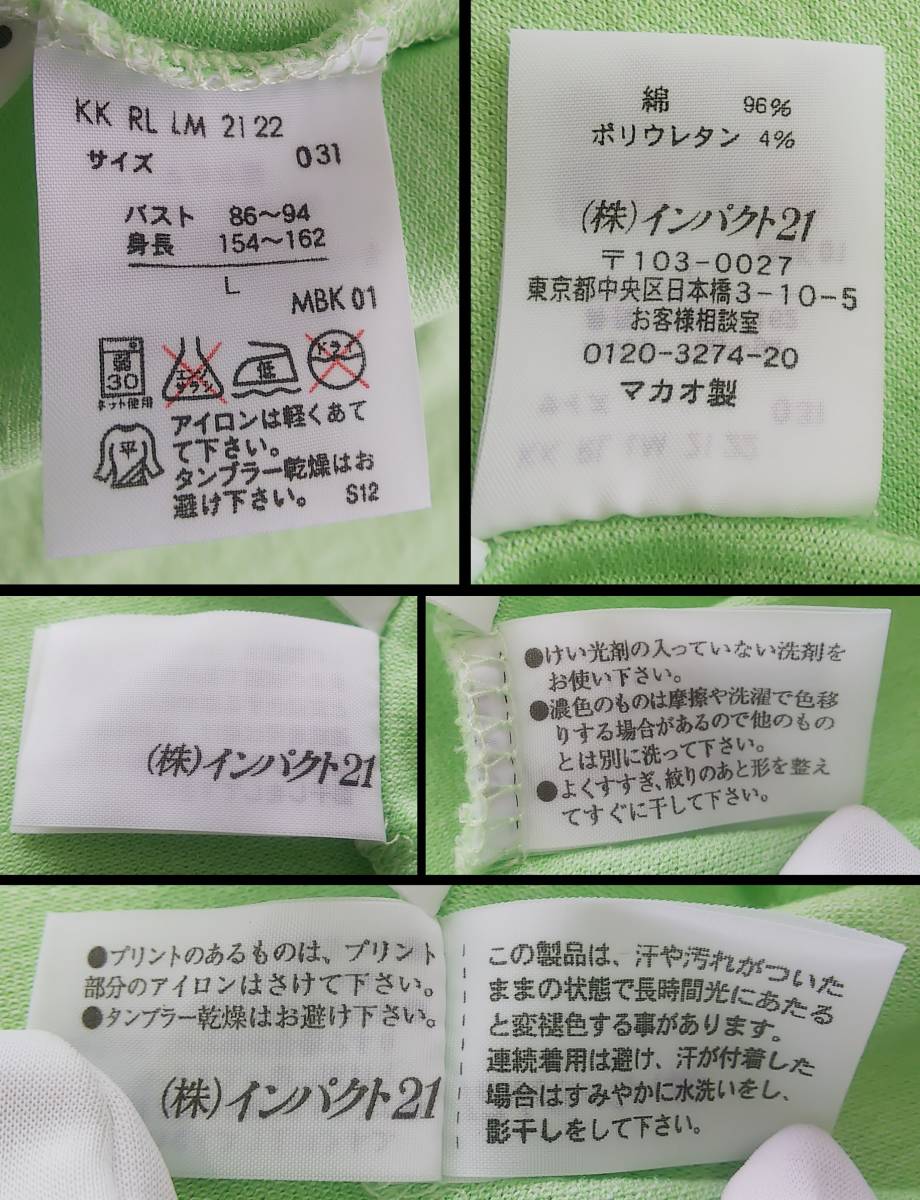 KK RL LM 21 22
サイズ 031
バスト 86~94
身長 154~162
L
MBK 01
弱
30
ネット使用
エンソ
サラシ
低
ドライ
平
アイロンは軽くあて
て下さい。
タンブラー乾燥はお
避け下さい。 S12
綿 96%
ポリウレタン 4%
(株)インパクト21
〒103-0027
東京都中央区日本橋3-10-5
お客様相談室
0120-3274-20
マカオ製
(株)インパクト21
●けい光剤の入っていない洗剤を
お使い下さい。
●濃色のものは摩擦や洗濯で色移
りする場合があるので他のもの
とは別に洗って下さい。
●よくすすぎ、絞りのあと形を整え
てすぐに干して下さい。
●プリントのあるものは、プリント
部分のアイロンはさけて下さい。
●タンブラー乾燥はお避け下さい。
(株)インパクト21
この製品は、汗や汚れがついた
ままの状態で長時間光にあたる
と変褪色する事があります。
連続着用は避け、汗が付着した
場合はすみやかに水洗いをし、
影干しをして下さい。